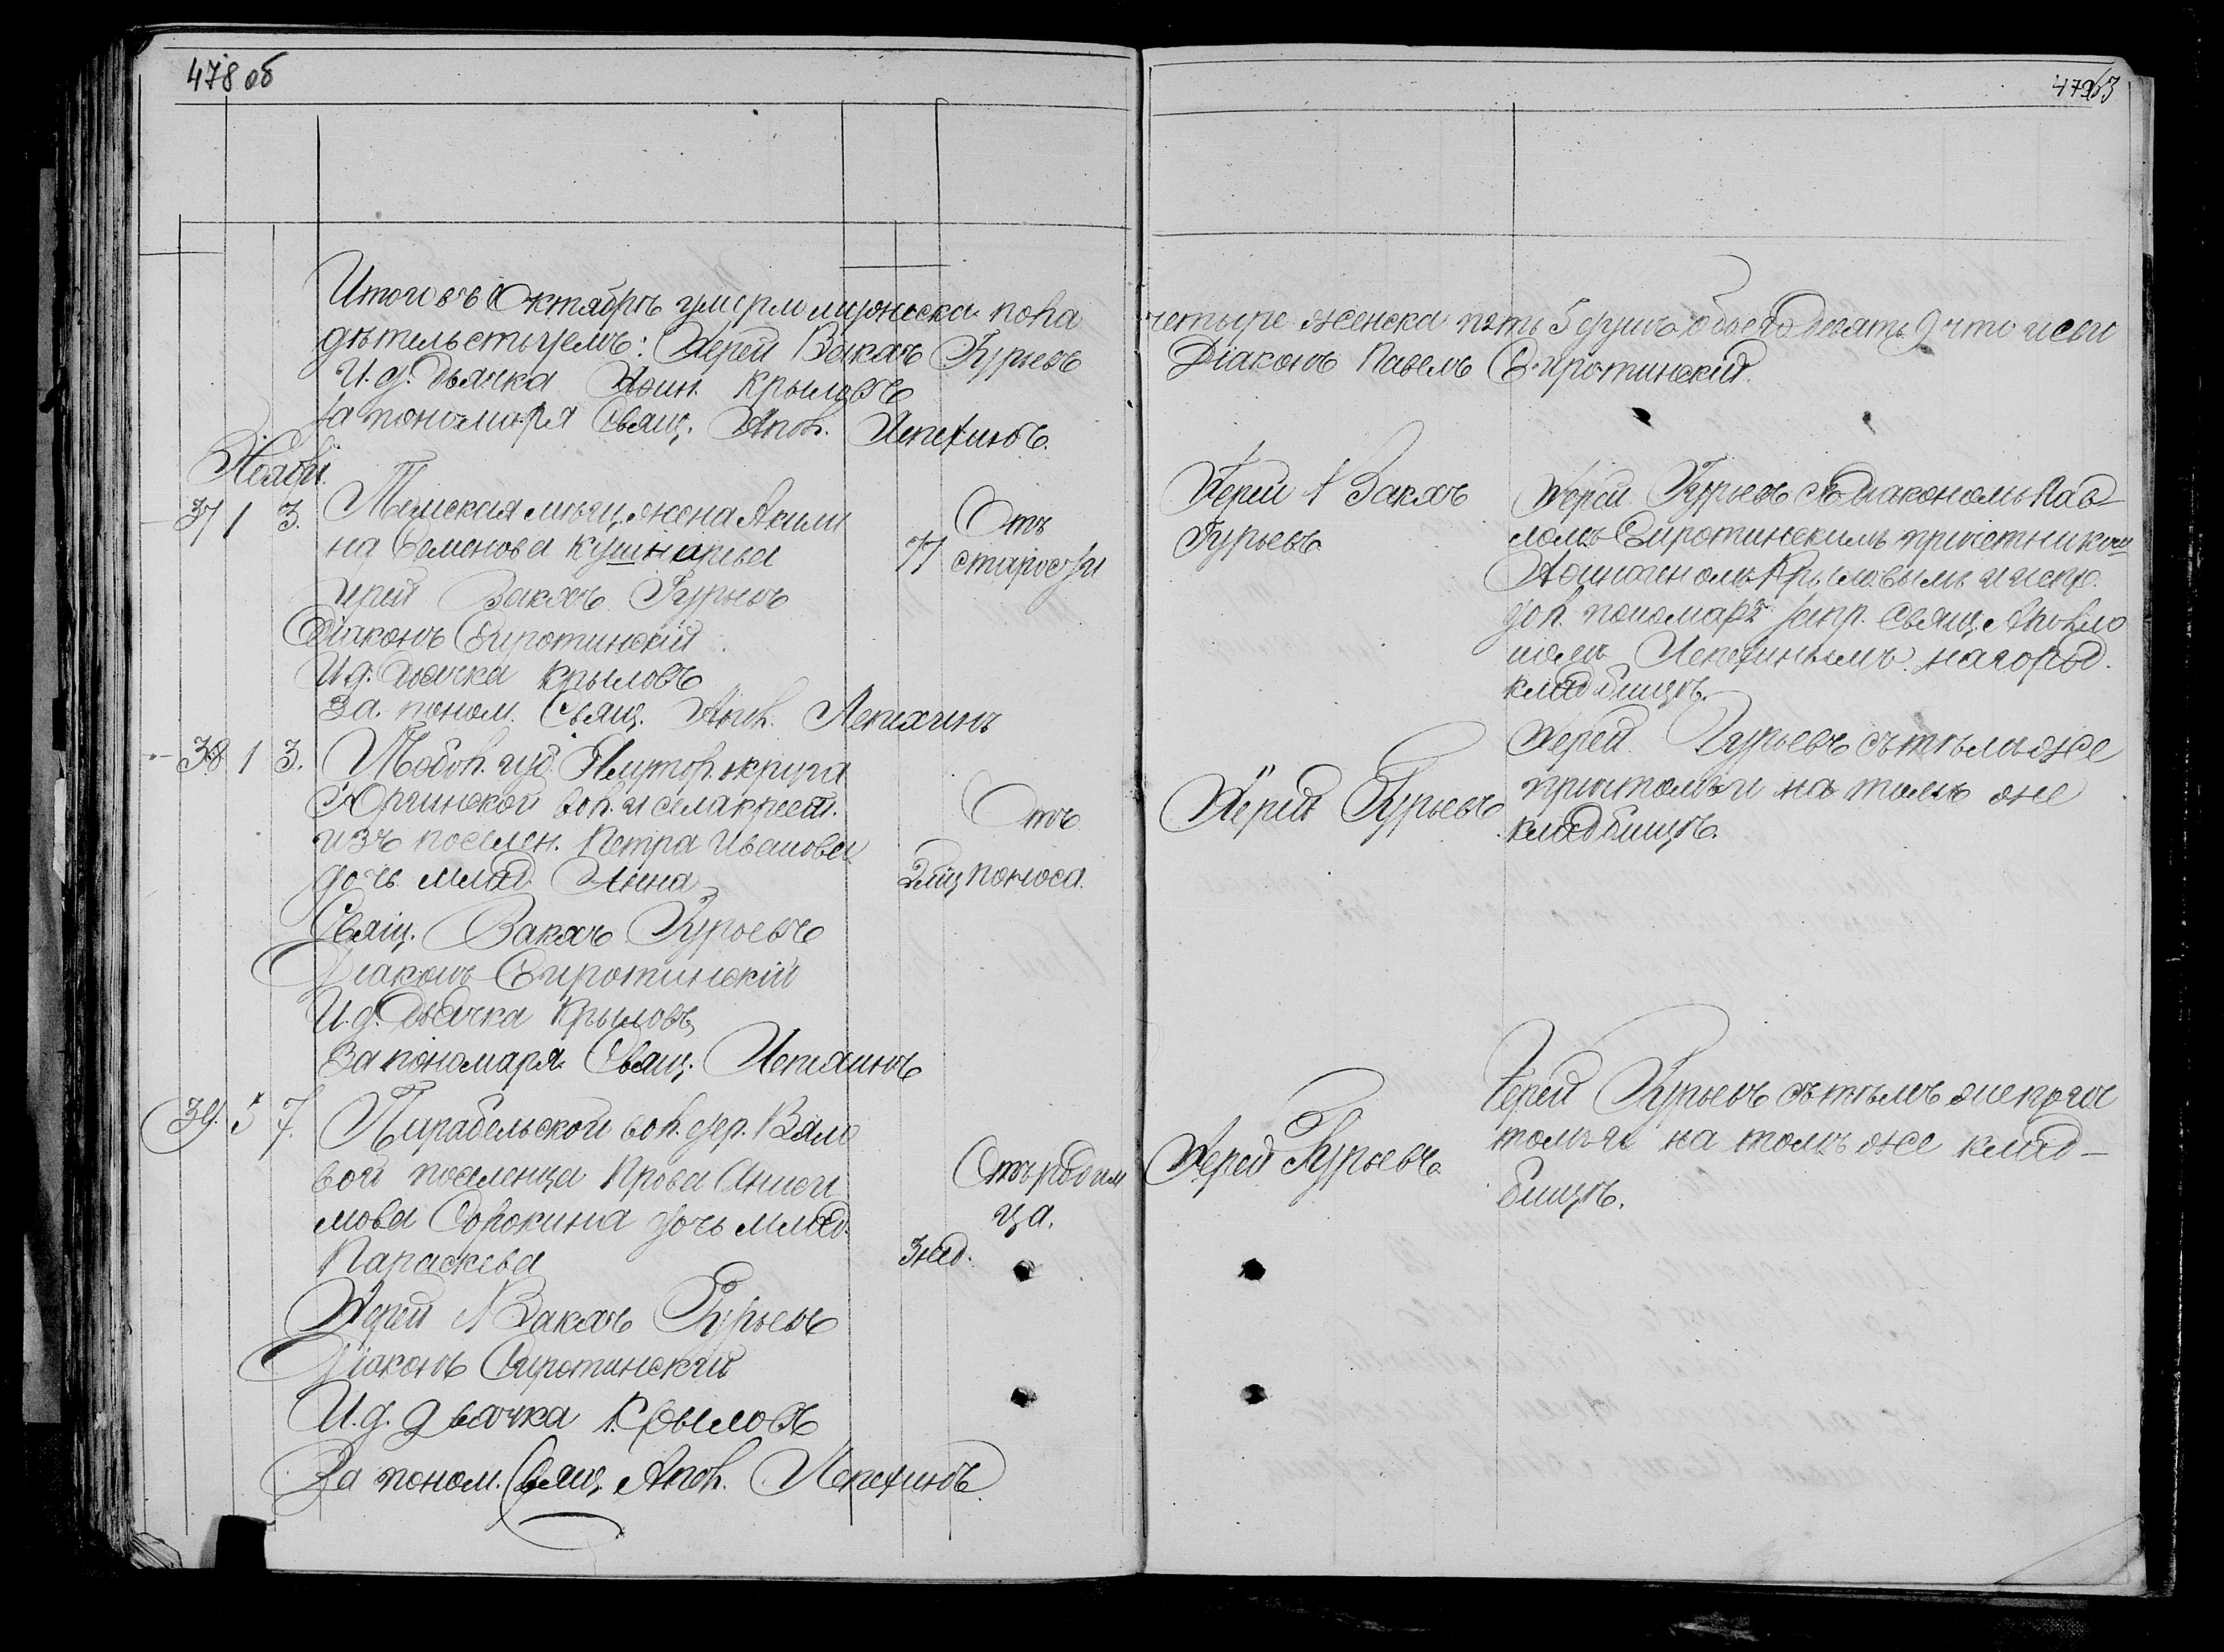 478 об
Итого въ Октябрѣ умерло мужеска пола
дѣтельствуемъ: Іерей Вакхъ Гурьевъ
И. д. Дьячка Афин. Крыловъ
За пономаря Свящ. Апол. Лепехинъ.
Ноябрь.
37 1 3. Томская мѣщ. жена Акили
на Семенова Кушнарева 77 Отъ старости
Іерей Вакхъ Гурьевъ
Діаконъ Сиротинскій
И. д. Дьячка Крыловъ
За поном. Свящ. Апол. Лепехинъ
38 1 3. Тобол. губ. Ялутор. округа
Юргинской вол. и села крест.
изъ поселен. Петра Иванова Отъ
дочь млад. Анна 2 мѣц поноса.
Свящ. Вакхъ Гурьевъ
Діаконъ Сиротинскій
И. д. Дьячка Крыловъ
За пономаря Свящ. Лепехинъ
39. 5 7. Парабельской вол. дер. Вяло
вой поселенца Прова Анфи Отъ родим
мова Сорокина дочь млад. ца.
Параскева 3 нед.
Іерей Вакхъ Гурьевъ
Діаконъ Сиротинскій
И. д. дьячка Крыловъ
За поном. Свящ. Апол. Лепехинъ
479
четыре женска пять 5 душъ обоего девять 9 что и сви
Діаконъ Павелъ Сиротинскій.
Іерей Вакхъ
Гурьевъ
Іерей Гурьевъ съ Діакономъ Пав-
ломъ Сиротинскимъ причетниками
Крыловымъ и испр.
дол. пономаря запр. Свящ. Аполло
Лепехинымъ на город.
кладбищѣ.
Іерей Гурьевъ
Іерей Гурьевъ съ тѣмъ же
причтомъ и на томъ же
кладбищѣ.
Іерей Гурьевъ
Іерей Гурьевъ съ тѣмъ же прич
томъ и на томъ же клад-
бищѣ.